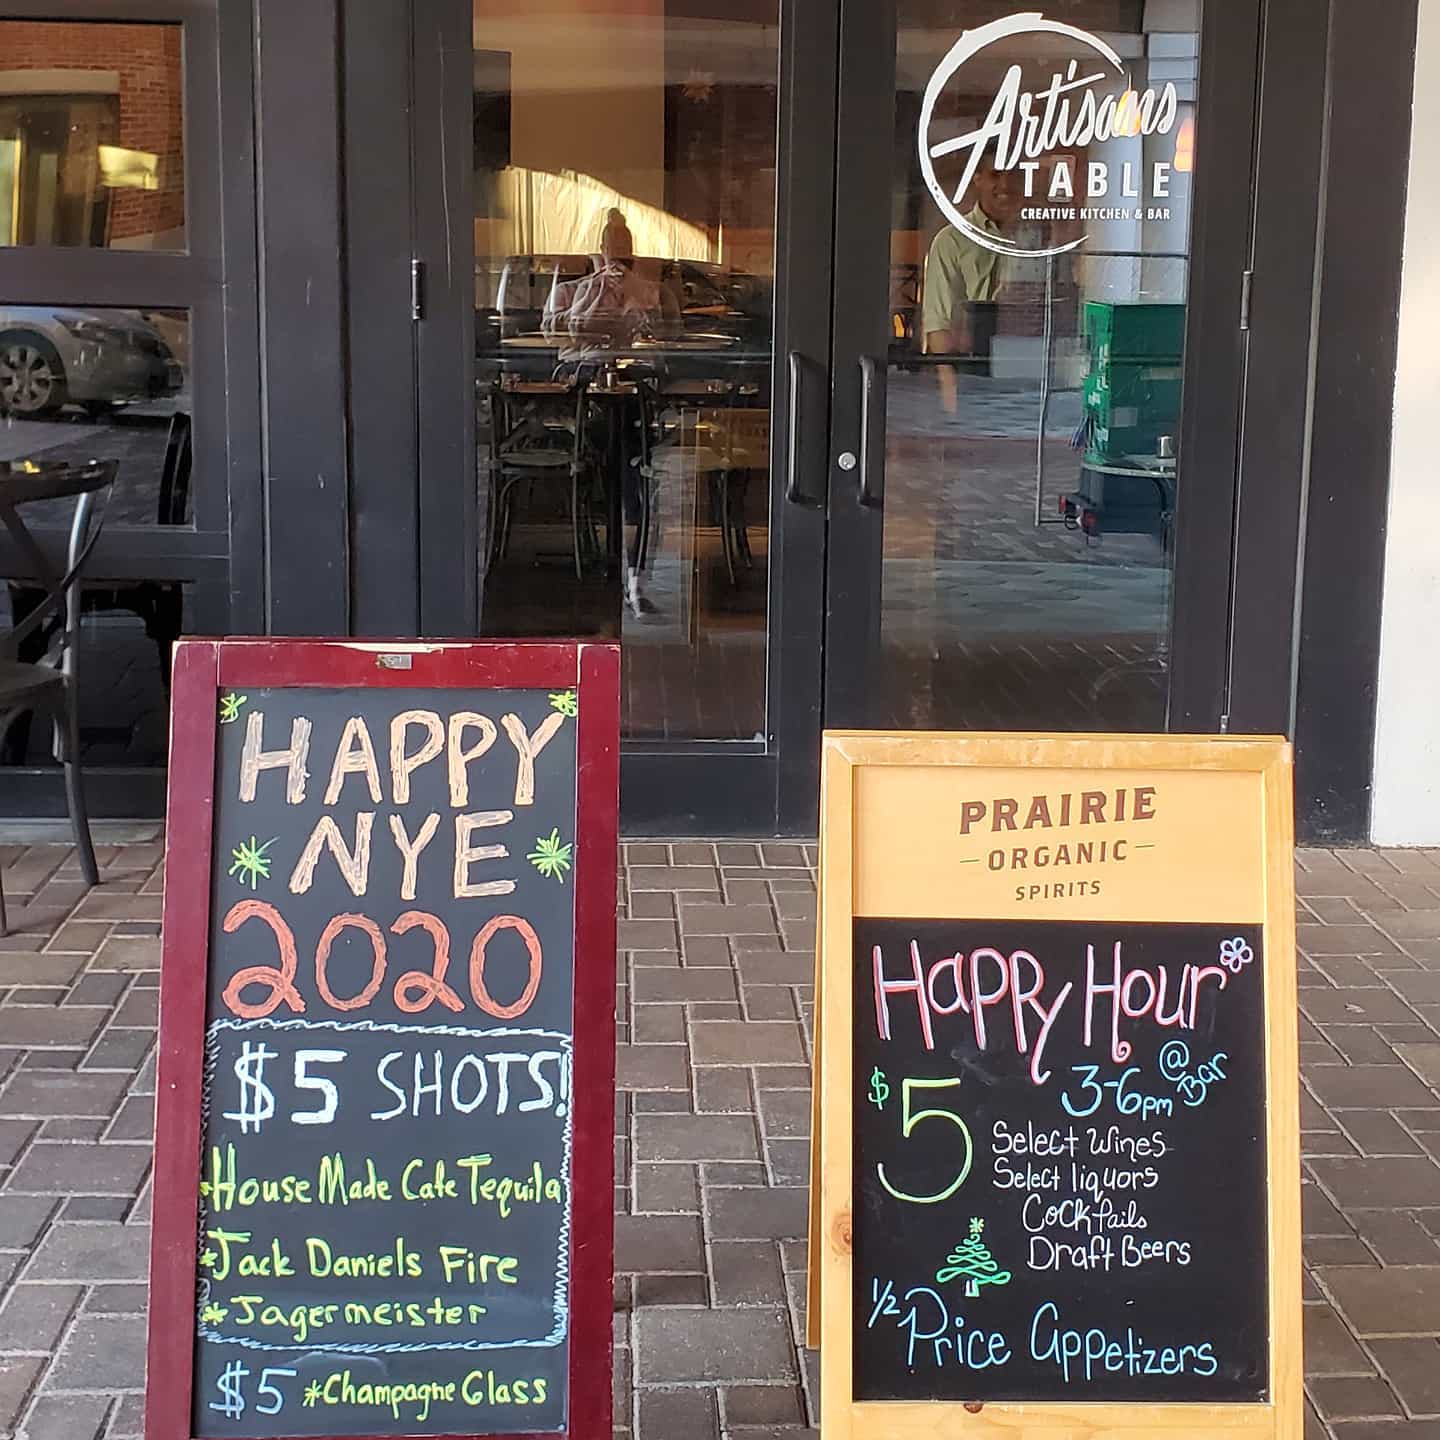 Artisans
TABLE
CREATIVE KITCHEN & BAR
HAPPY
NYE
2020
$5 SHOTS!
*House Made Cafe Tequila
*Jack Daniels Fire
*Jagermeister
$5 *Champagne Glass
PRAIRIE
- ORGANIC -
SPIRITS
Happy Hour
3-6pm @ Bar
$5
Select Wines
Select liquors
Cocktails
Draft Beers
1/2 Price Appetizers